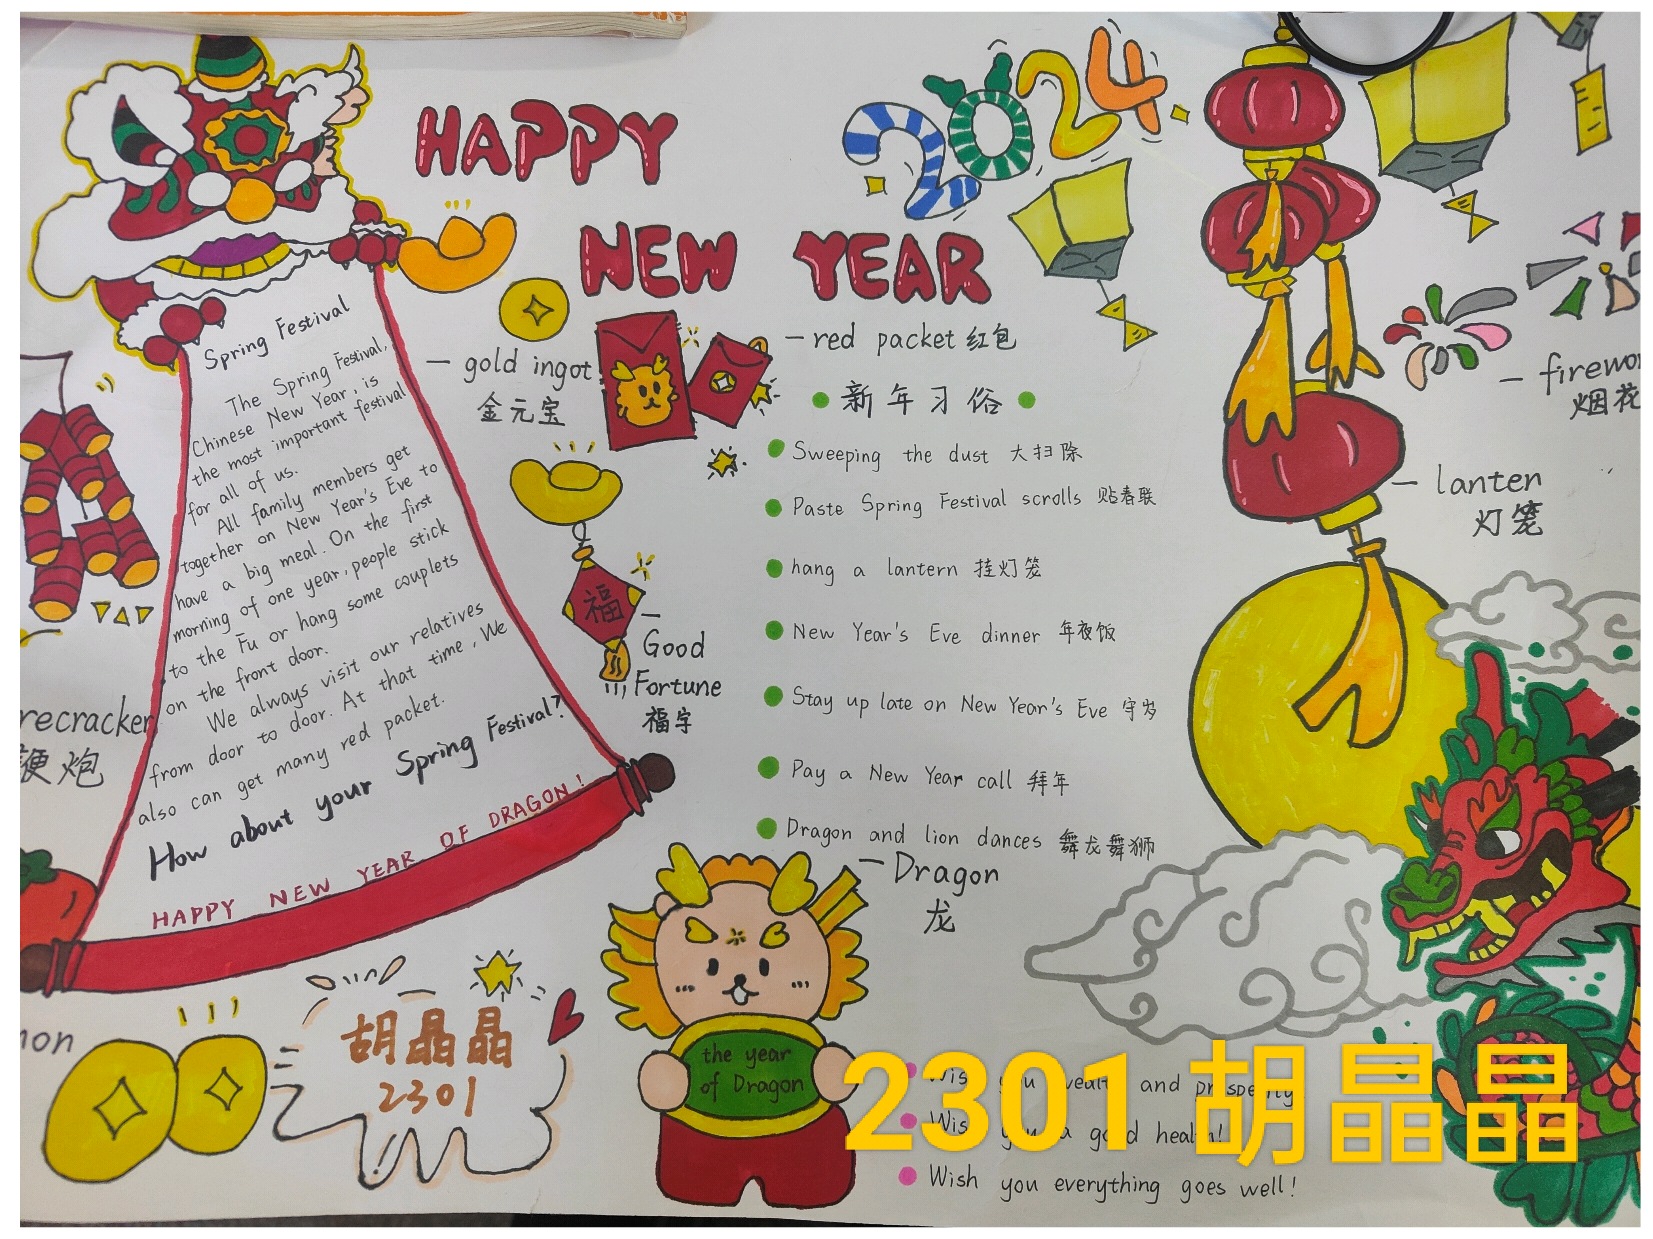 HAPPY
2024
NEW YEAR
Spring Festival
The Spring Festival,
Chinese New Year, is
the most important festival
for all of us.
All family members get
together on New Year's Eve to
have a big meal. On the first
morning of one year, people stick
to the Fu or hang some couplets
on the front door.
We always visit our relatives
from door to door. At that time, We
also can get many red packet.
How about your Spring Festival?
HAPPY NEW YEAR OF DRAGON!
— gold ingot
金元宝
— red packet 红包
新年习俗
Sweeping the dust 大扫除
Paste Spring Festival scrolls 贴春联
hang a lantern 挂灯笼
New Year's Eve dinner 年夜饭
Stay up late on New Year's Eve 守岁
Pay a New Year call 拜年
Dragon and lion dances 舞龙舞狮
福
— Good
Fortune
福字
— firewor
烟花
— lanten
灯笼
recracker
炮
— Dragon
龙
non
胡晶晶
2301
the year
of Dragon
Wish you wealth and prosperity
Wish you a good health!
Wish you everything goes well!
2301 胡晶晶